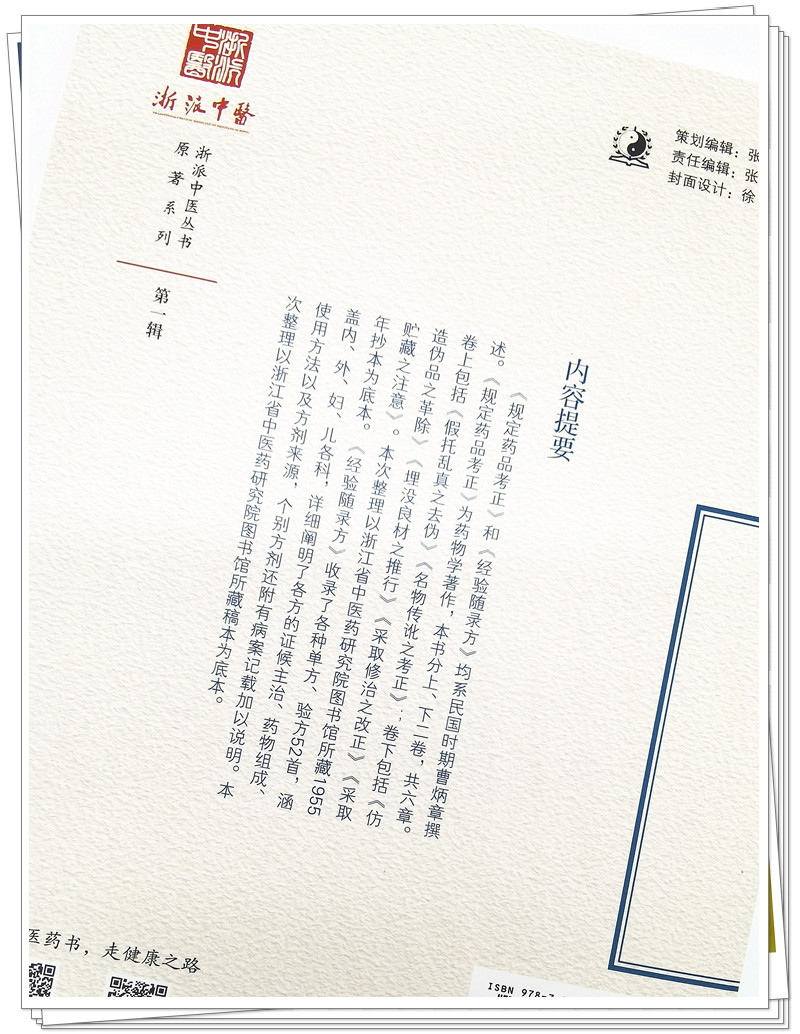 浙派
中醫
浙派中醫
浙派中医丛书
原著系列
第一辑
策划编辑：张
责任编辑：张
封面设计：徐
内容提要
《规定药品考正》和《经验随录方》均系民国时期曹炳章撰
述。《规定药品考正》为药物学著作，本书分上、下二卷，共六章。
卷上包括《假托乱真之去伪》《名物传讹之考正》；卷下包括《仿
造伪品之革除》《埋没良材之推行》《采取修治之改正》《采取
贮藏之注意》。本次整理以浙江省中医药研究院图书馆所藏1955
年抄本为底本。《经验随录方》收录了各种单方、验方52首，涵
盖内、外、妇、儿各科，详细阐明了各方的证候主治、药物组成、
使用方法以及方剂来源，个别方剂还附有病案记载加以说明。本
次整理以浙江省中医药研究院图书馆所藏稿本为底本。
医药书，走健康之路
ISBN 978-7